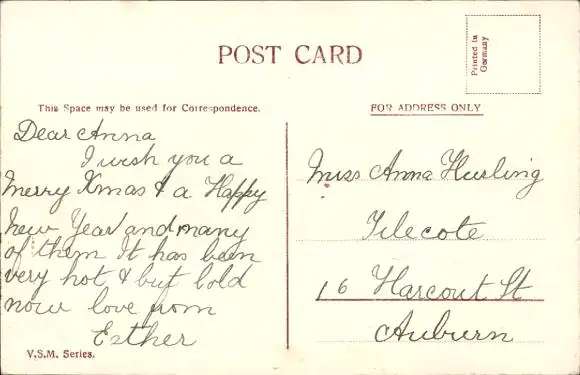 POST CARD
Printed in
Germany
This Space may be used for Correspondence.
FOR ADDRESS ONLY
Dear Anna
I wish you a
Merry Xmas & a Happy
New Year and many
of them It has been
very hot & but cold
now love from
Esther
V.S.M. Series.
Miss Anna Hurling
Filecote
16 Harcout St
Auburn